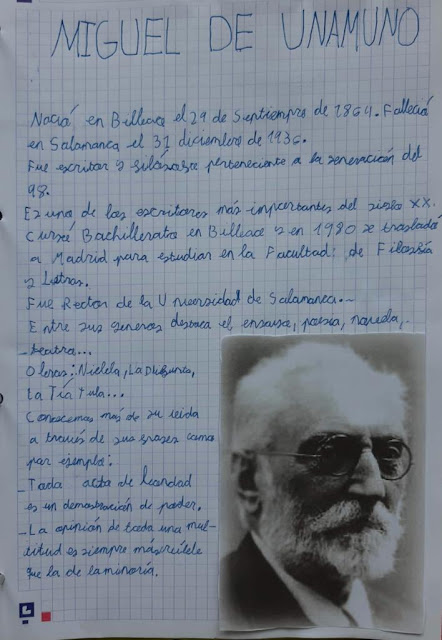 MIGUEL DE UNAMUNO
Nació en Bilbao el 29 de Sentiempre de 1864. Falleció
en Salamanca el 31 diciembre de 1936.
Fue escritor y filósofo perteneciente a la generación del
98.
Es uno de los escritores más importantes del siglo XX.
Cursó Bachillerato en Bilbao y en 1980 se traslado
a Madrid para estudiar en la Facultad: de Filosfía
y Letras.
Fue Rector de la Universidad de Salamanca.
Entre sus generos destaca el ensayo, poesía, novela,
teatro...
Obras: Niebla, La
La Tía Tula...
Conocemos más de su vida
a través de sus frases como
por ejemplo:
_Todo acto de bondad
es un demostración de poder.
_La opinión de toda una mul-
titud es siempre más creíble
que la de la minoría.